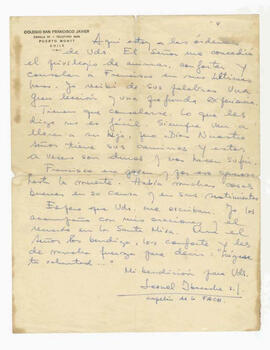 COLEGIO SAN FRANCISCO JAVIER
PUERTO MONTT
CHILE
Aquí estoy a las órdenes
de Uds. El Señor me concedió
el privilegio de animar, confortar y
consolar a Francisco en sus últimas
horas. Yo recibí de sus palabras una
gran lección y una profunda
Tienen que consolarse. Lo que les
digo no es fácil. Siempre van a
llorar a su hijo, pero Dios Nuestro
Señor tiene sus caminos y estos
a veces son duros y nos hacen sufrir.
Francisco era joven y
hasta la muerte. Había muchas cosas
buenas en su alma y en sus sentimientos
Espero que Uds. me escriban. Yo los
acompaño con mis oraciones y los
recuerdo en la Santa Misa. Que el
Señor los bendiga, los conforte y les
dé mucha fuerza para decir: "Hágase
tu voluntad..."
Mi bendición para Uds.
s.j.
capellán de la FACH.